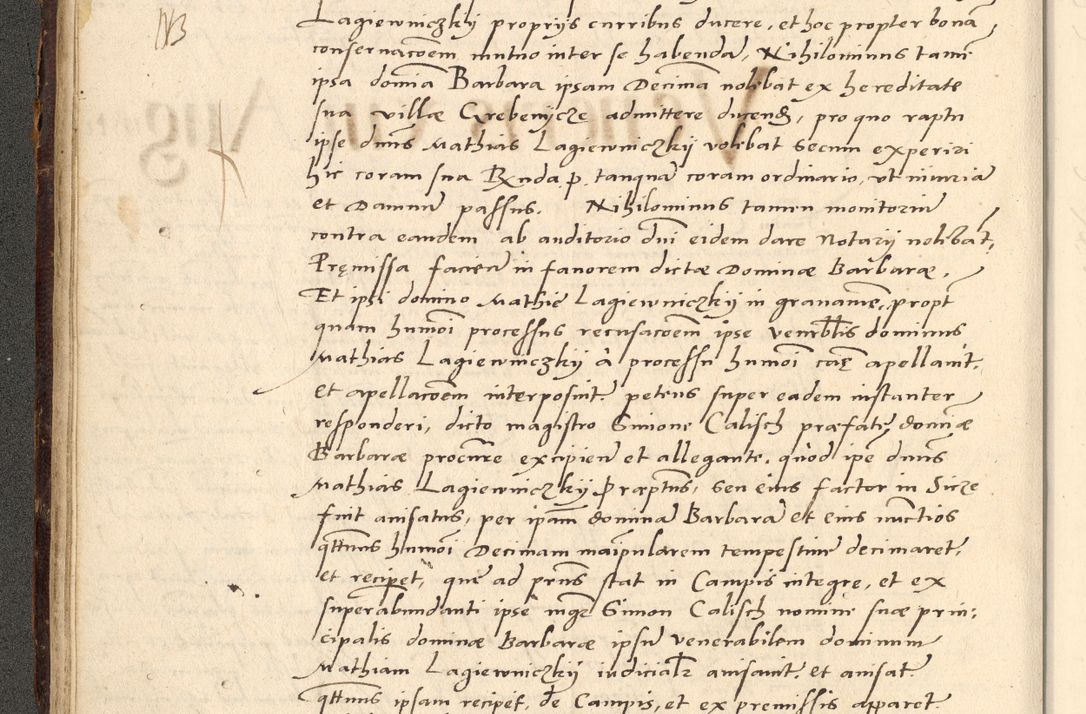 NB
Lagiewniczkÿ proprÿs curribus ducere, et hoc propter bonã
conservacõem mutuo inter se habendã, Nihilominus tamẽ
ipsa domĩa Barbara ipsam Decimã nolebat ex hereditate
sua villæ Grebenÿcze admittere ducend, pro quo raptu
ipse dñus Mathias Lagiewniczkÿ volebat secum experiri
hic coram sua Rnda p. tanquã coram ordinario, ut iniuriã
et Damnũ passus. Nihilominus tamen monitoriũ
contra eandem ab auditorio dñi eidem dare Notarÿ nolebãt,
Pręmissa facieñ in favorem dictæ Dominæ Barbaræ,
Et ipsi domino Mathie Lagiewniczkÿ in gravamẽ, propt
quam humõi processus recusacõem ipse venerblis dominus
Mathias Lagiewniczkÿ à processu humõi apellavit,
et apellacõem interposuit petens super eadem instanter
responderi, dicto magistro Simone Calisch præfatę dominæ
Barbaræ procure excipieñ et allegante, quòd ipẽ dñus
Mathias Lagiewniczkÿ Præptus, seu eius factor in Size
fuit avisatus, per ipam dominã Barbarã et eius nuctios
qttnus humõi Decimam maipularem tempestive decimaret,
et recipet, que ad prns stat in Campis integre, et ex
superabundanti ipse mgr Simon Calisch nomine suæ prin:
cipalis dominæ Barbaræ ipsũ venerabilem dominum
Mathiam Lagiewniczkÿ iudicialr avisavit et avisat
qttnus ipsam recipet, de Campis, et ex premissis apparet